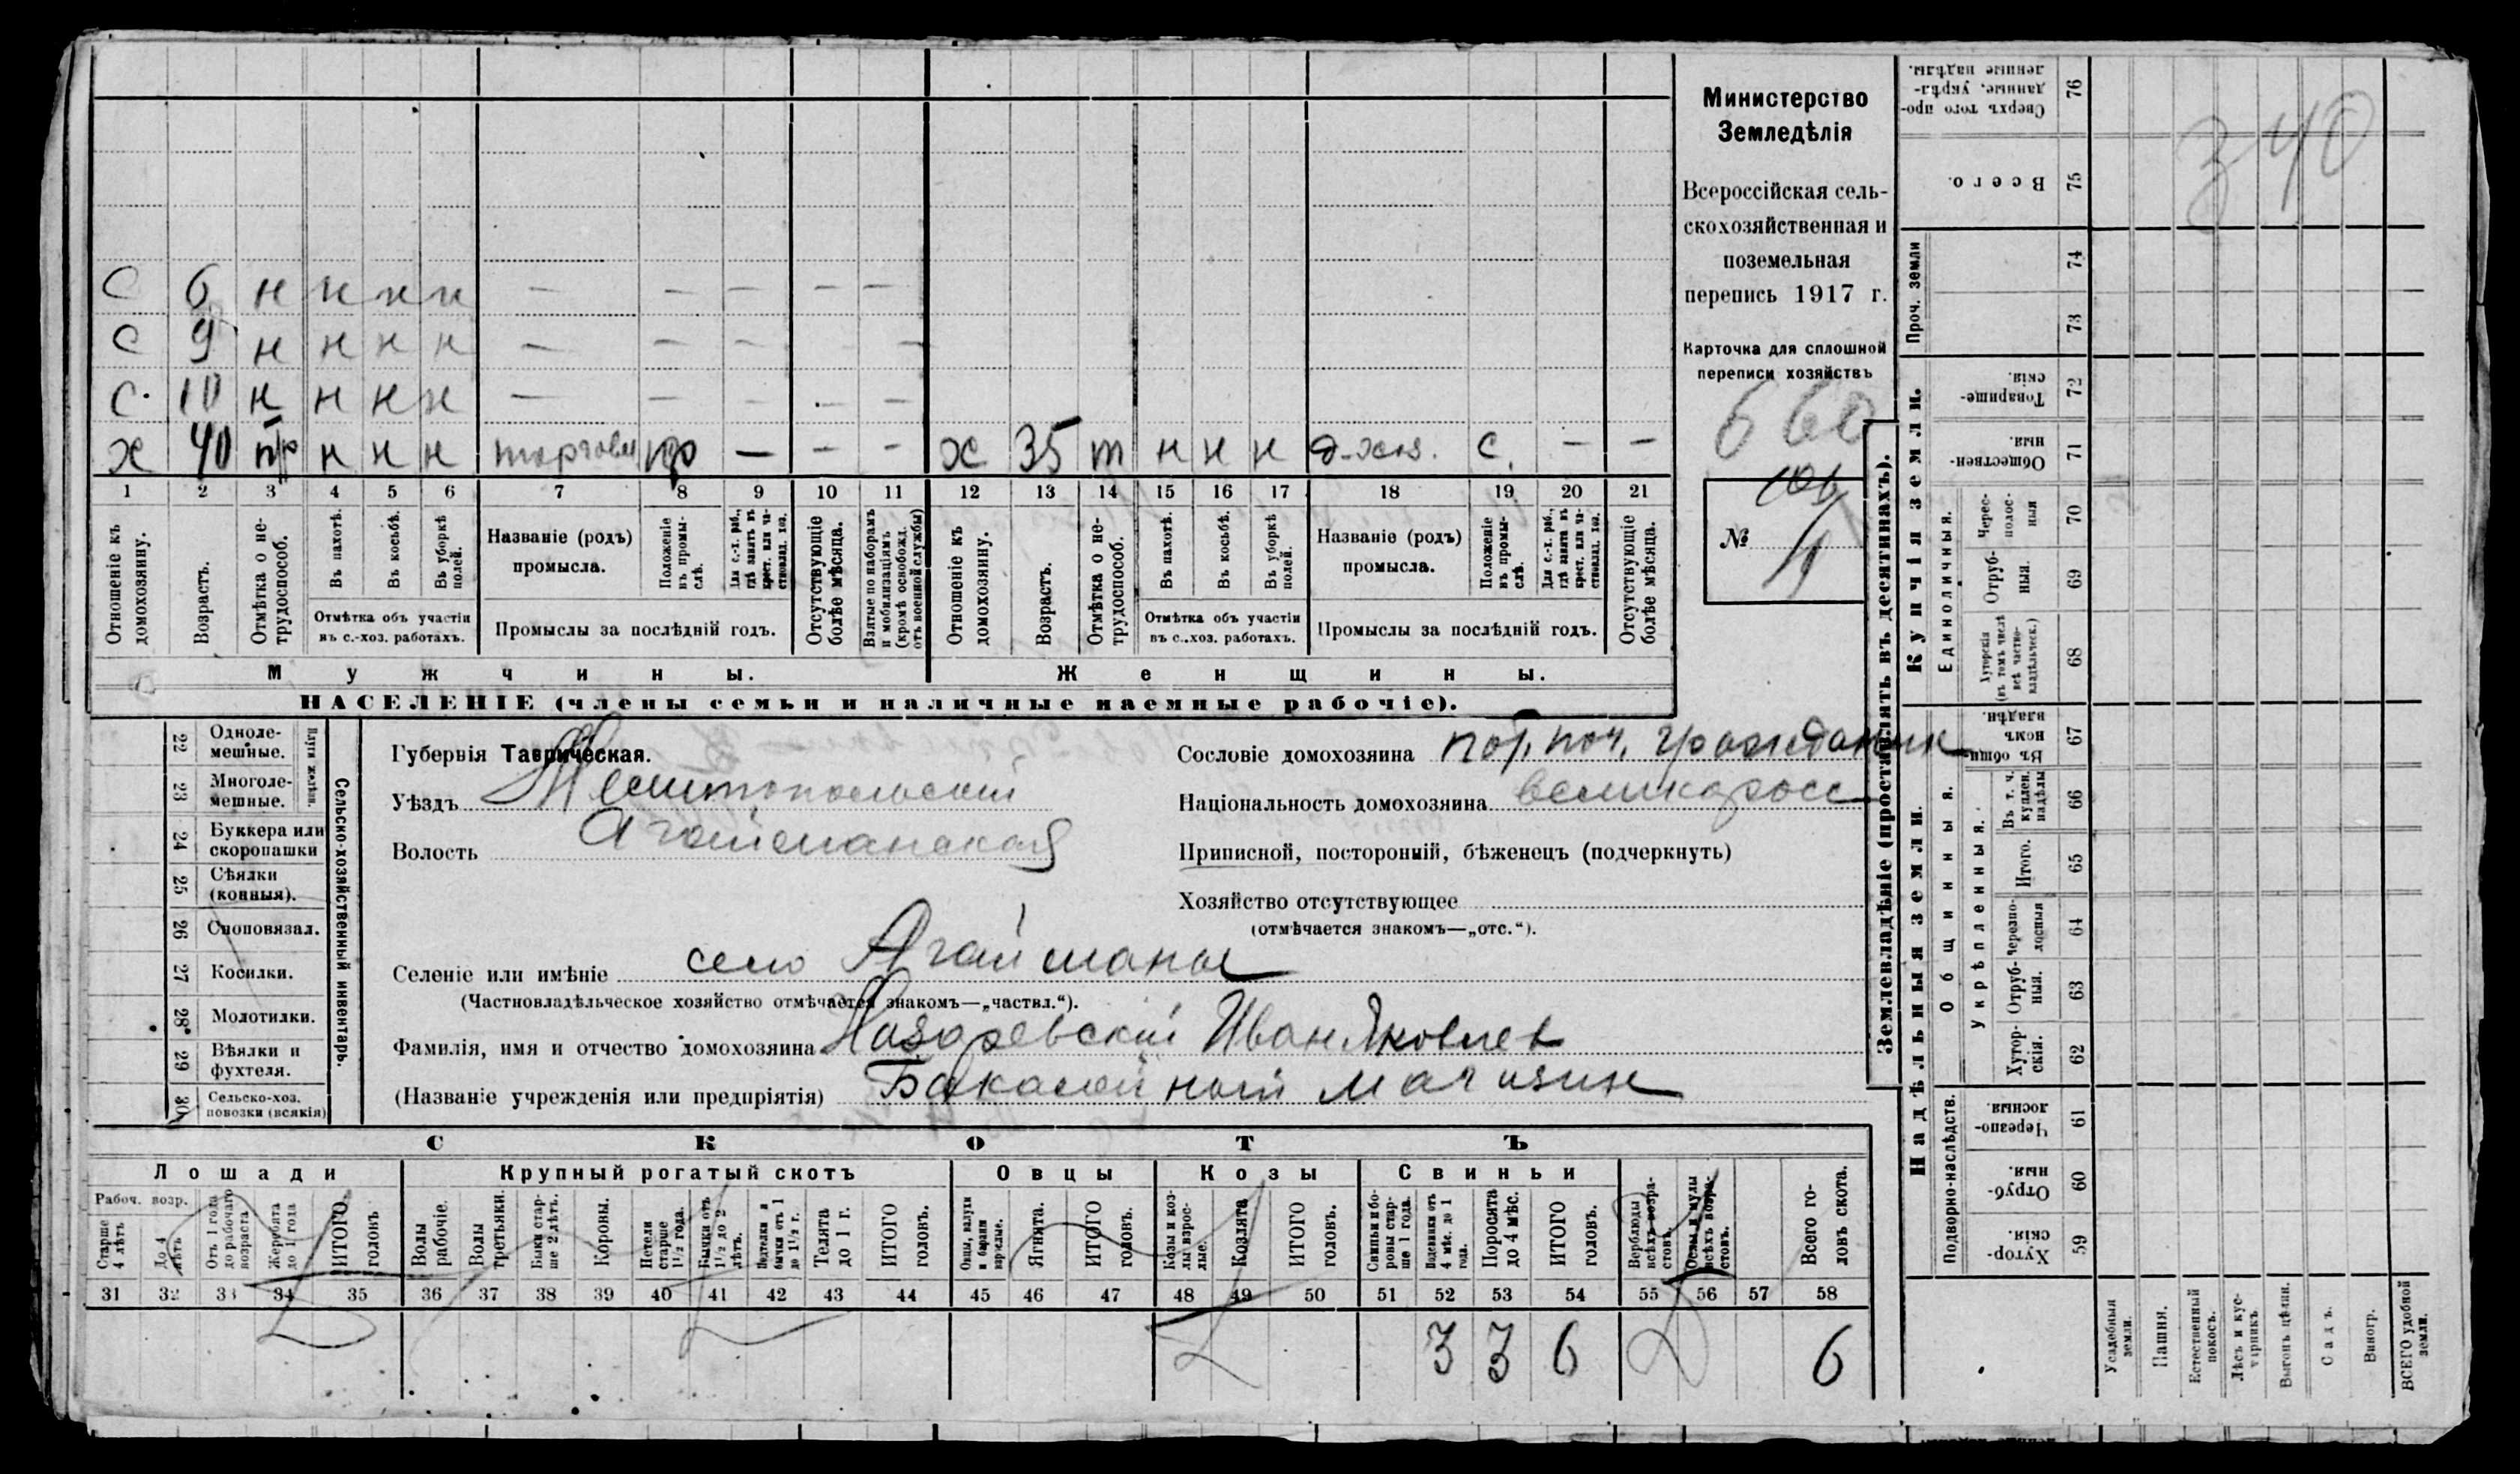 С 6 н н н н — — — — —
С 9 н н н н — — — —
С. 10 н н н н — — — — —
х 40 пр н н н торговля хр — — — х 35 т н н н д.хоз. с. — —
1 2 3 4 5 6 7 8 9 10 11 12 13 14 15 16 17 18 19 20 21
Отношеніе къ домохозяину.
Возрастъ.
Отмѣтка о не-трудоспособ.
Въ пахотѣ.
Въ косьбѣ.
Въ уборкѣ полей.
Отмѣтка объ участіи въ с.-хоз. работахъ.
Названіе (родъ) промысла.
Положеніе въ промы-слѣ.
Для с.-х. раб., гдѣ занятъ въ крест. или ча-стновлад. хоз.
Промыслы за послѣдній годъ.
Отсутствующіе болѣе мѣсяца.
Взятые по наборамъ и мобилизаціямъ (кромѣ освобожд. отъ военной службы)
Отношеніе къ домохозяину.
Возрастъ.
Отмѣтка о не-трудоспособ.
Въ пахотѣ.
Въ косьбѣ.
Въ уборкѣ полей.
Отмѣтка объ участіи въ с.-хоз. работахъ.
Названіе (родъ) промысла.
Положеніе въ промы-слѣ.
Для с.-х. раб., гдѣ занятъ въ крест. или ча-стновлад. хоз.
Промыслы за послѣдній годъ.
Отсутствующіе болѣе мѣсяца.
Мужчины. Женщины.
НАСЕЛЕНІЕ (члены семьи и наличные наемные рабочіе).
Министерство
Земледѣлія
Всероссійская сель-
скохозяйственная и
поземельная
перепись 1917 г.
Карточка для сплошной
переписи хозяйствъ
660
№
340
22 Одноле-мешные.
23 Многоле-мешные.
Плуги желѣзн.
24 Буккера или скоропашки
25 Сѣялки (конныя).
26 Сноповязал.
27 Косилки.
28 Молотилки.
29 Вѣялки и фухтеля.
30 Сельско-хоз. повозки (всякія)
Сельско-хозяйственный инвентарь.
Губернія Таврическая.
Уѣздъ Мелитопольскій
Волость Агайманская
Сословіе домохозяина пот. поч. гражданин
Національность домохозяина великоросс
Приписной, посторонній, бѣженецъ (подчеркнуть)
Хозяйство отсутствующее
(отмѣчается знакомъ—„отс.“).
Селеніе или имѣніе село Агайманы
(Частновладѣльческое хозяйство отмѣчается знакомъ—„частвл.“).
Фамилія, имя и отчество домохозяина Назаревскій Иван Яковлев
(Названіе учрежденія или предпріятія) Бакалейный магазин
СКОТЪ
Лошади Крупный рогатый скотъ Овцы Козы Свиньи
Рабоч. возр.
Старше 4 лѣтъ
До 4 лѣтъ
Отъ 1 года до рабочаго возраста
Жеребята до 1 года
ИТОГО головъ
Волы рабочіе.
Волы третьяки.
Быки стар-ше 2 лѣтъ.
Коровы.
Нетели старше 1½ года.
Бычки отъ 1½ до 2 лѣтъ.
Телята до 1 г.
ИТОГО головъ.
Ягнята.
ИТОГО головъ.
Козы и коз-лы взрос-лые.
Козлята
ИТОГО головъ.
Свиньи и бо-ровы стар-ше 1 года.
Поросята до 4 мѣс.
ИТОГО головъ.
Верблюды всѣхъ возра-стовъ.
Ослы и мулы всѣхъ возра-стовъ.
Всего го-ловъ скота.
31 32 33 34 35 36 37 38 39 40 41 42 43 44 45 46 47 48 49 50 51 52 53 54 55 56 57 58
3 3 6 6
Землевладѣніе (проставлять въ десятинахъ).
Купчія земли.
Надѣльныя земли.
Единоличныя.
Общинныя.
Укрѣпленныя.
Подворно-наслѣдств.
Проч. земли
76 Сверхъ того про-данные, укрѣп-ленные надѣлы.
75 Всего.
74
73
72 Товарище-скія.
71 Обществен-ныя.
70 Черес-полос-ныя
69 Отруб-ныя.
68 Хуторскія (въ томъ числѣ всѣ частно-владѣльческ.)
67 Въ общин-номъ владѣн.
66 Въ т. ч. куплен. надѣлы
65 Итого.
64 Черезпо-лосныя
63 Отруб-ныя.
62 Хутор-скія.
61 Черезпо-лосныя.
60 Отруб-ныя.
59 Хутор-скія.
Усадебныя земли.
Пашня.
Естественный покосъ.
Лѣсъ и кус-тарникъ
Выгонъ цѣлин.
Садъ.
Виногр.
ВСЕГО удобной земли.